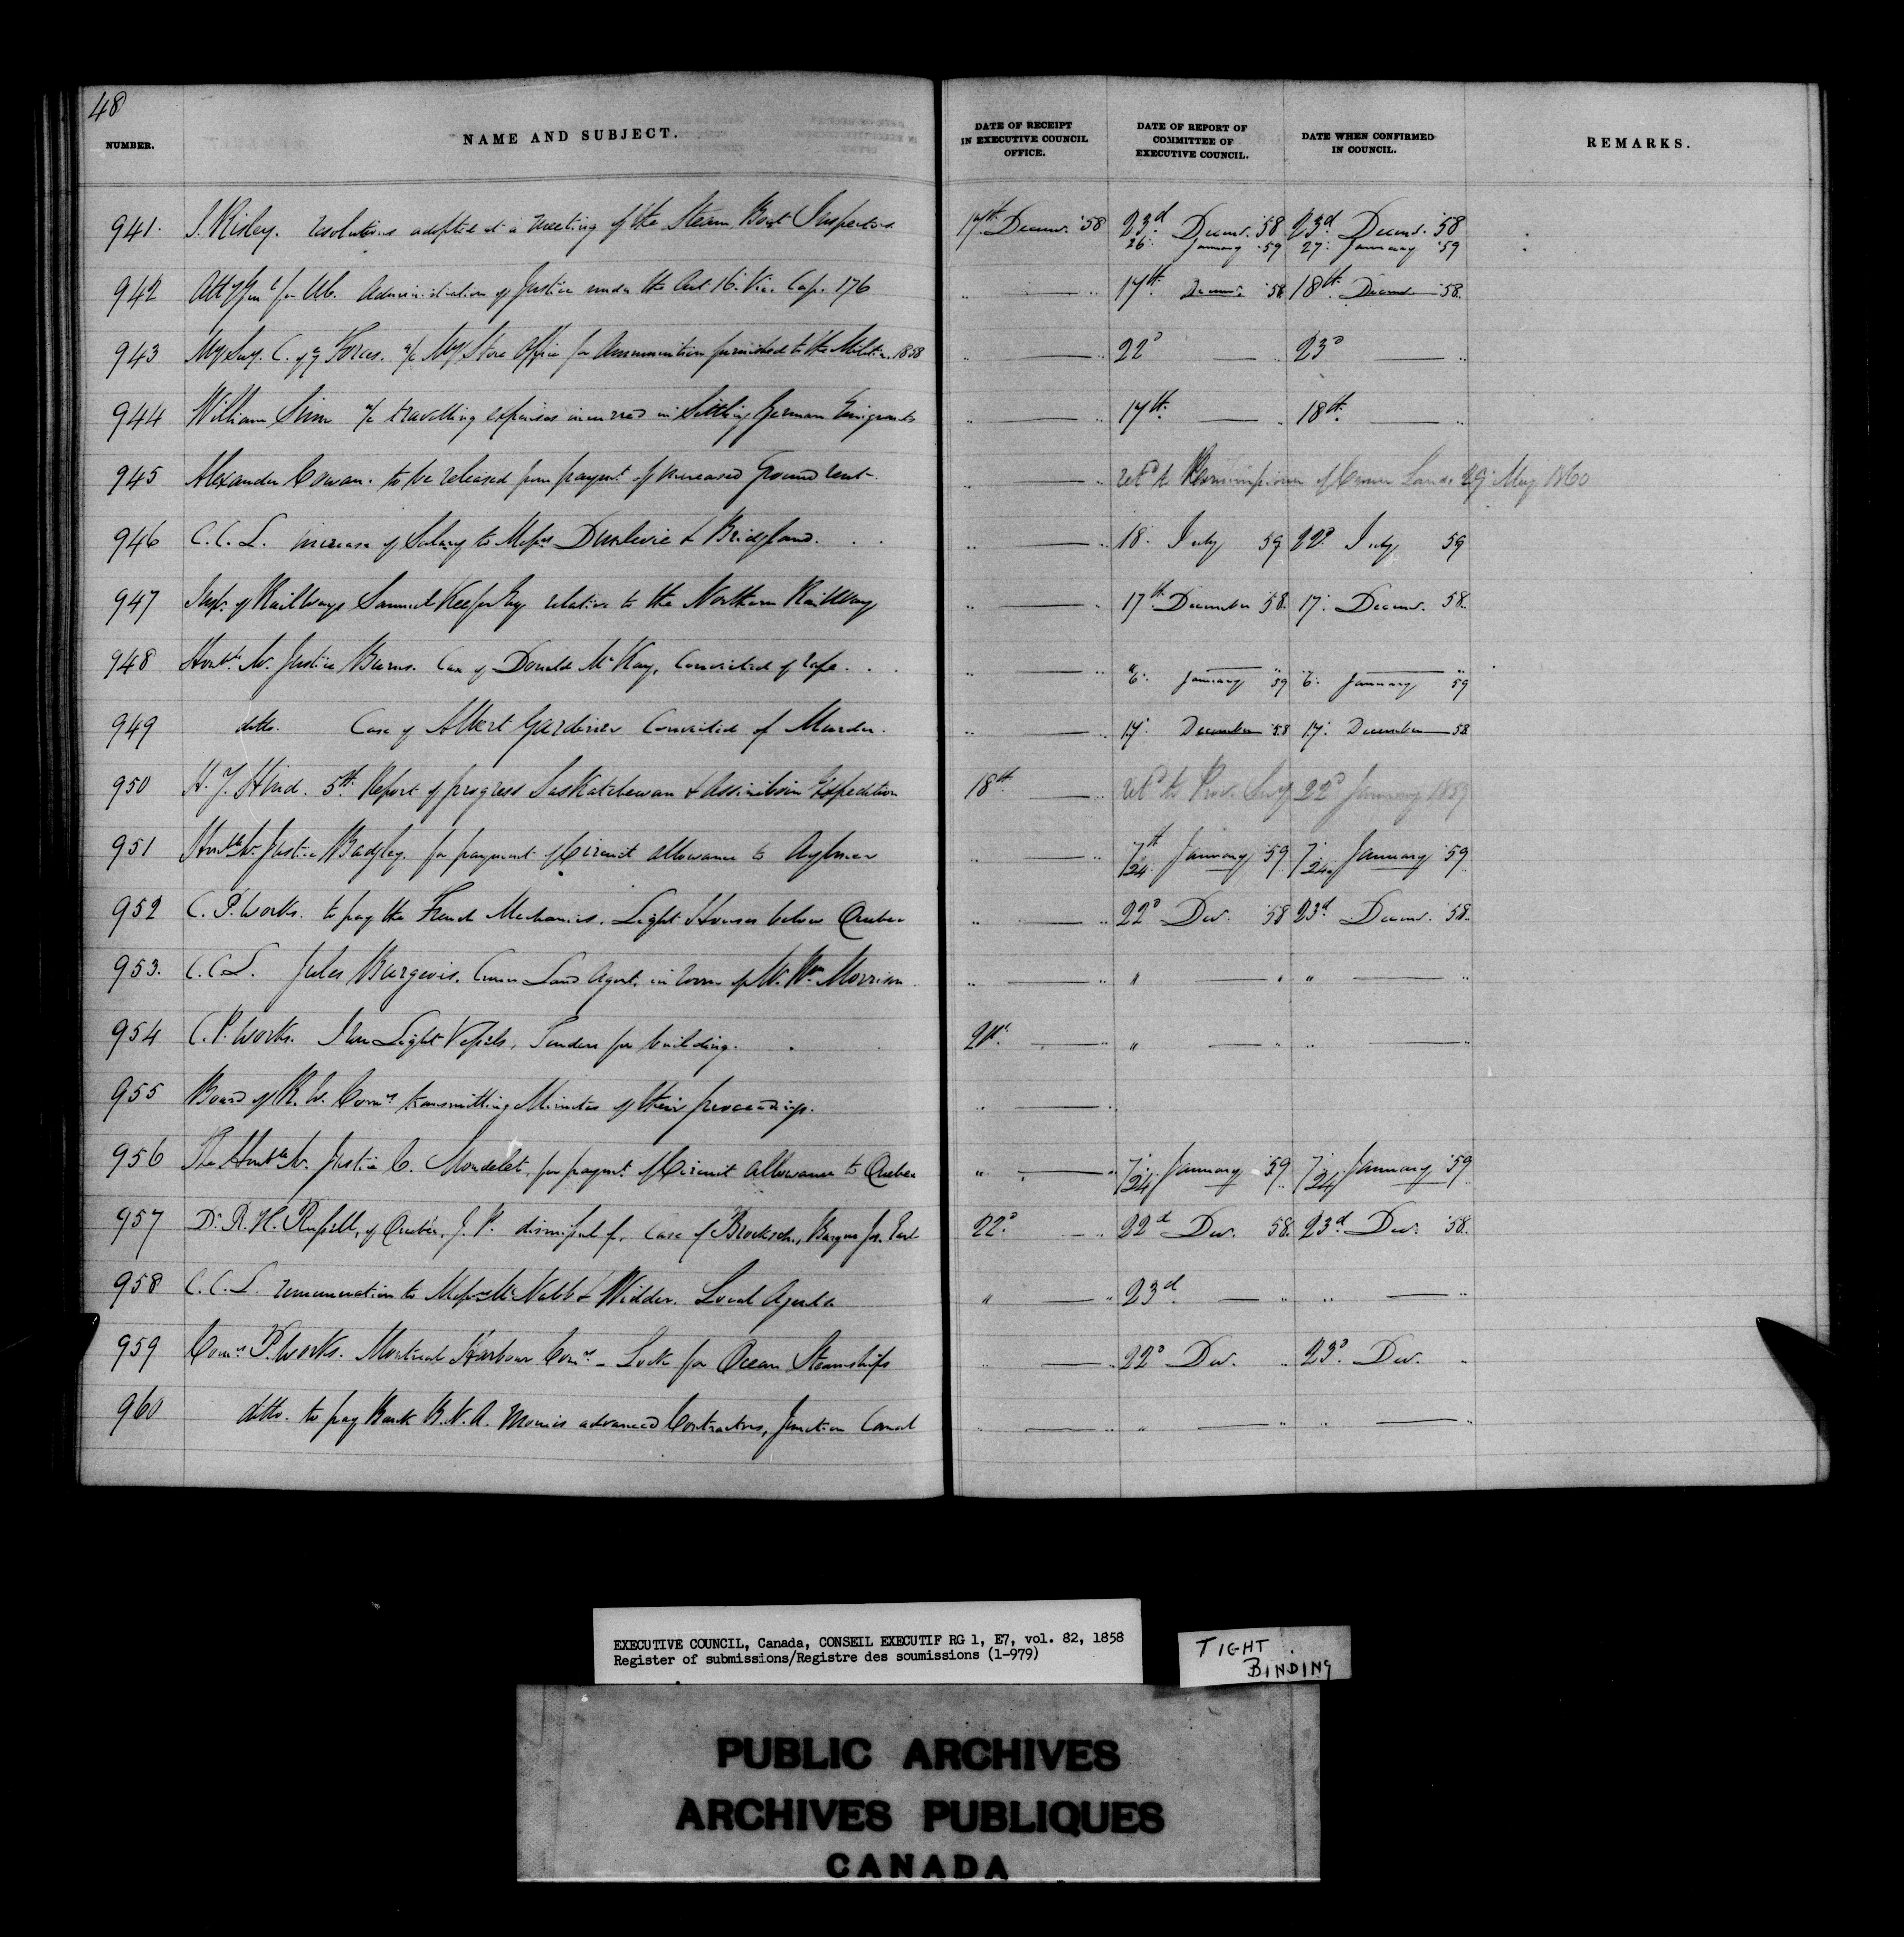 48
NUMBER. NAME AND SUBJECT. DATE OF RECEIPT IN EXECUTIVE COUNCIL OFFICE. DATE OF REPORT OF COMMITTEE OF EXECUTIVE COUNCIL. DATE WHEN CONFIRMED IN COUNCIL. REMARKS.
941. S. Risley. resolutions adopted at a meeting of the Steam Boat Inspectors 17th Decemr. '58 23d Decemr. '58 23d Decemr. '58
26. January '59 27. January '59
942 Atty Genl for UC. Administration of Justice under the Act 16. Vic. Cap. 176 " — " 17th Decemr. 58 18th Decemr 58.
943 Mily Secy. C. of ye Forces. a/c Mily Store Office for Ammunition furnished to the Militia. 1858 " — " 22d — " 23d — "
944 William Sim a/c travelling expenses incurred in Settling German Emigrants " — " 17th — " 18th — "
945 Alexander Cowan. to be released from paymt of increased Ground rent. " — " retd to Commissioner of Crown Lands 29. May 1860
946 C.C.L. increase of Salary to Messrs Dunlevie & Bridgland. " — " 18. July 59 22d July 59
947 Inspr. of Railways Samuel Keefer Esq relative to the Northern Railway " — " 17th December 58. 17. Decemr. 58.
948 Honble Mr. Justice Burns. Case of Donald McKay, Convicted of rape. " — " 6. January 59 6. January 59
949 ditto. Case of Albert Gardinier Convicted of Murder. " — " 17. December 58 17. December 58
950 H. Y. Hind. 5th Report of progress Saskatchewan & Assiniboin Expedition 18th — " retd to Prov. Secy 22d January 1859
951 Honble Mr Justice Badgley. for payment of Circuit allowance to Aylmer " — " 7th/24. January '59 7./24. January '59
952 C. P. Works. to pay the French Mechanics. Light Houses below Quebec " — " 22d Dec. 58 23d Decemr. 58.
953. C.C.L. Jules Burgevis. Crown Land Agent. in room of Mr. Wm Morrison " — " " — " " — "
954 C. P. Works. Iron Light Vessels, Tenders for building. 21st. — " " — " " — "
955 Board of R. W. Comrs transmitting Minutes of their proceedings. " — "
956 The Honble Mr. Justice C. Mondelet, for paymt. of Circuit allowance to Quebec " — " 7./24 January 59 7./24 January '59
957 Dr. R. H. Russell, of Quebec, J. P. dismissal of, case of Barque 22d — " 22d Dec. 58. 23d Dec. '58.
958 C.C.L. remuneration to Messrs McNabb & Widder. Local Agents " — " 23d — " " — "
959 Comrs P. Works. Montreal Harbour Comrs - Lock for Ocean Steamships " — " 22d Dec. " 23d. Dec. "
960 ditto. to pay Bank B. N. A. monies advanced Contractors, Junction Canal " — " " — " " — "
EXECUTIVE COUNCIL, Canada, CONSEIL EXECUTIF RG 1, E7, vol. 82, 1858
Register of submissions/Registre des soumissions (1-979)
TIGHT
BINDING
PUBLIC ARCHIVES
ARCHIVES PUBLIQUES
CANADA